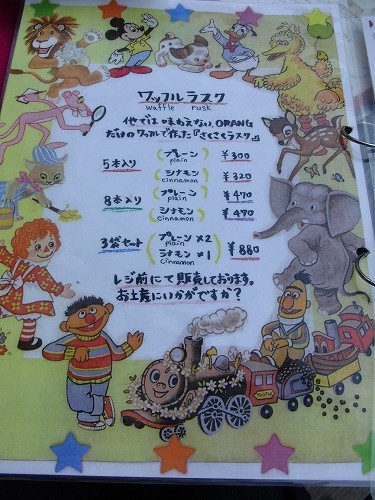 ワッフルラスク
waffle rusk
他では味わえない、ORANG
だけのワッフルで作った「さくさくラスク」
5本入り (プレーン) ¥300
plain
(シナモン) ¥320
cinnamon
8本入り (プレーン) ¥470
plain
(シナモン) ¥490
cinnamon
3袋セット (プレーン×2 ¥880
plain
シナモン×1)
cinnamon
レジ前にて販売しております。
お土産にいかがですか?